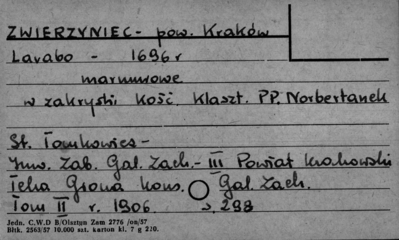 ZWIERZYNIEC - pow. Kraków
Lavabo - 1696 r
marmurowe
w zakrystii kość. klaszt. PP. Norbertanek
St. Tomkowicz -
Inw. Zab. Gal. Zach. - III Powiat krakowski
Teka Grona kons. Gal. Zach.
Tom II r. 1906 s. 298
Jedn. C.W.D B/Olsztyn Zam 2776 /on/57
Bltk. 2563/57 10.000 szt. karton kl. 7 g 220.